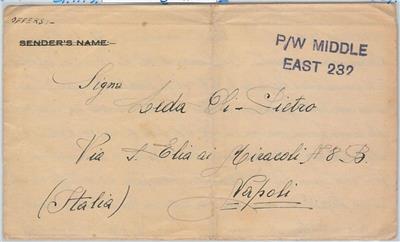 OFFERS:-
SENDER'S NAME:-
P/W MIDDLE
EAST 232
Signa
Leda Di-Pietro
Via S. Elia ai Miracoli N 8 B
Napoli
(Italia)